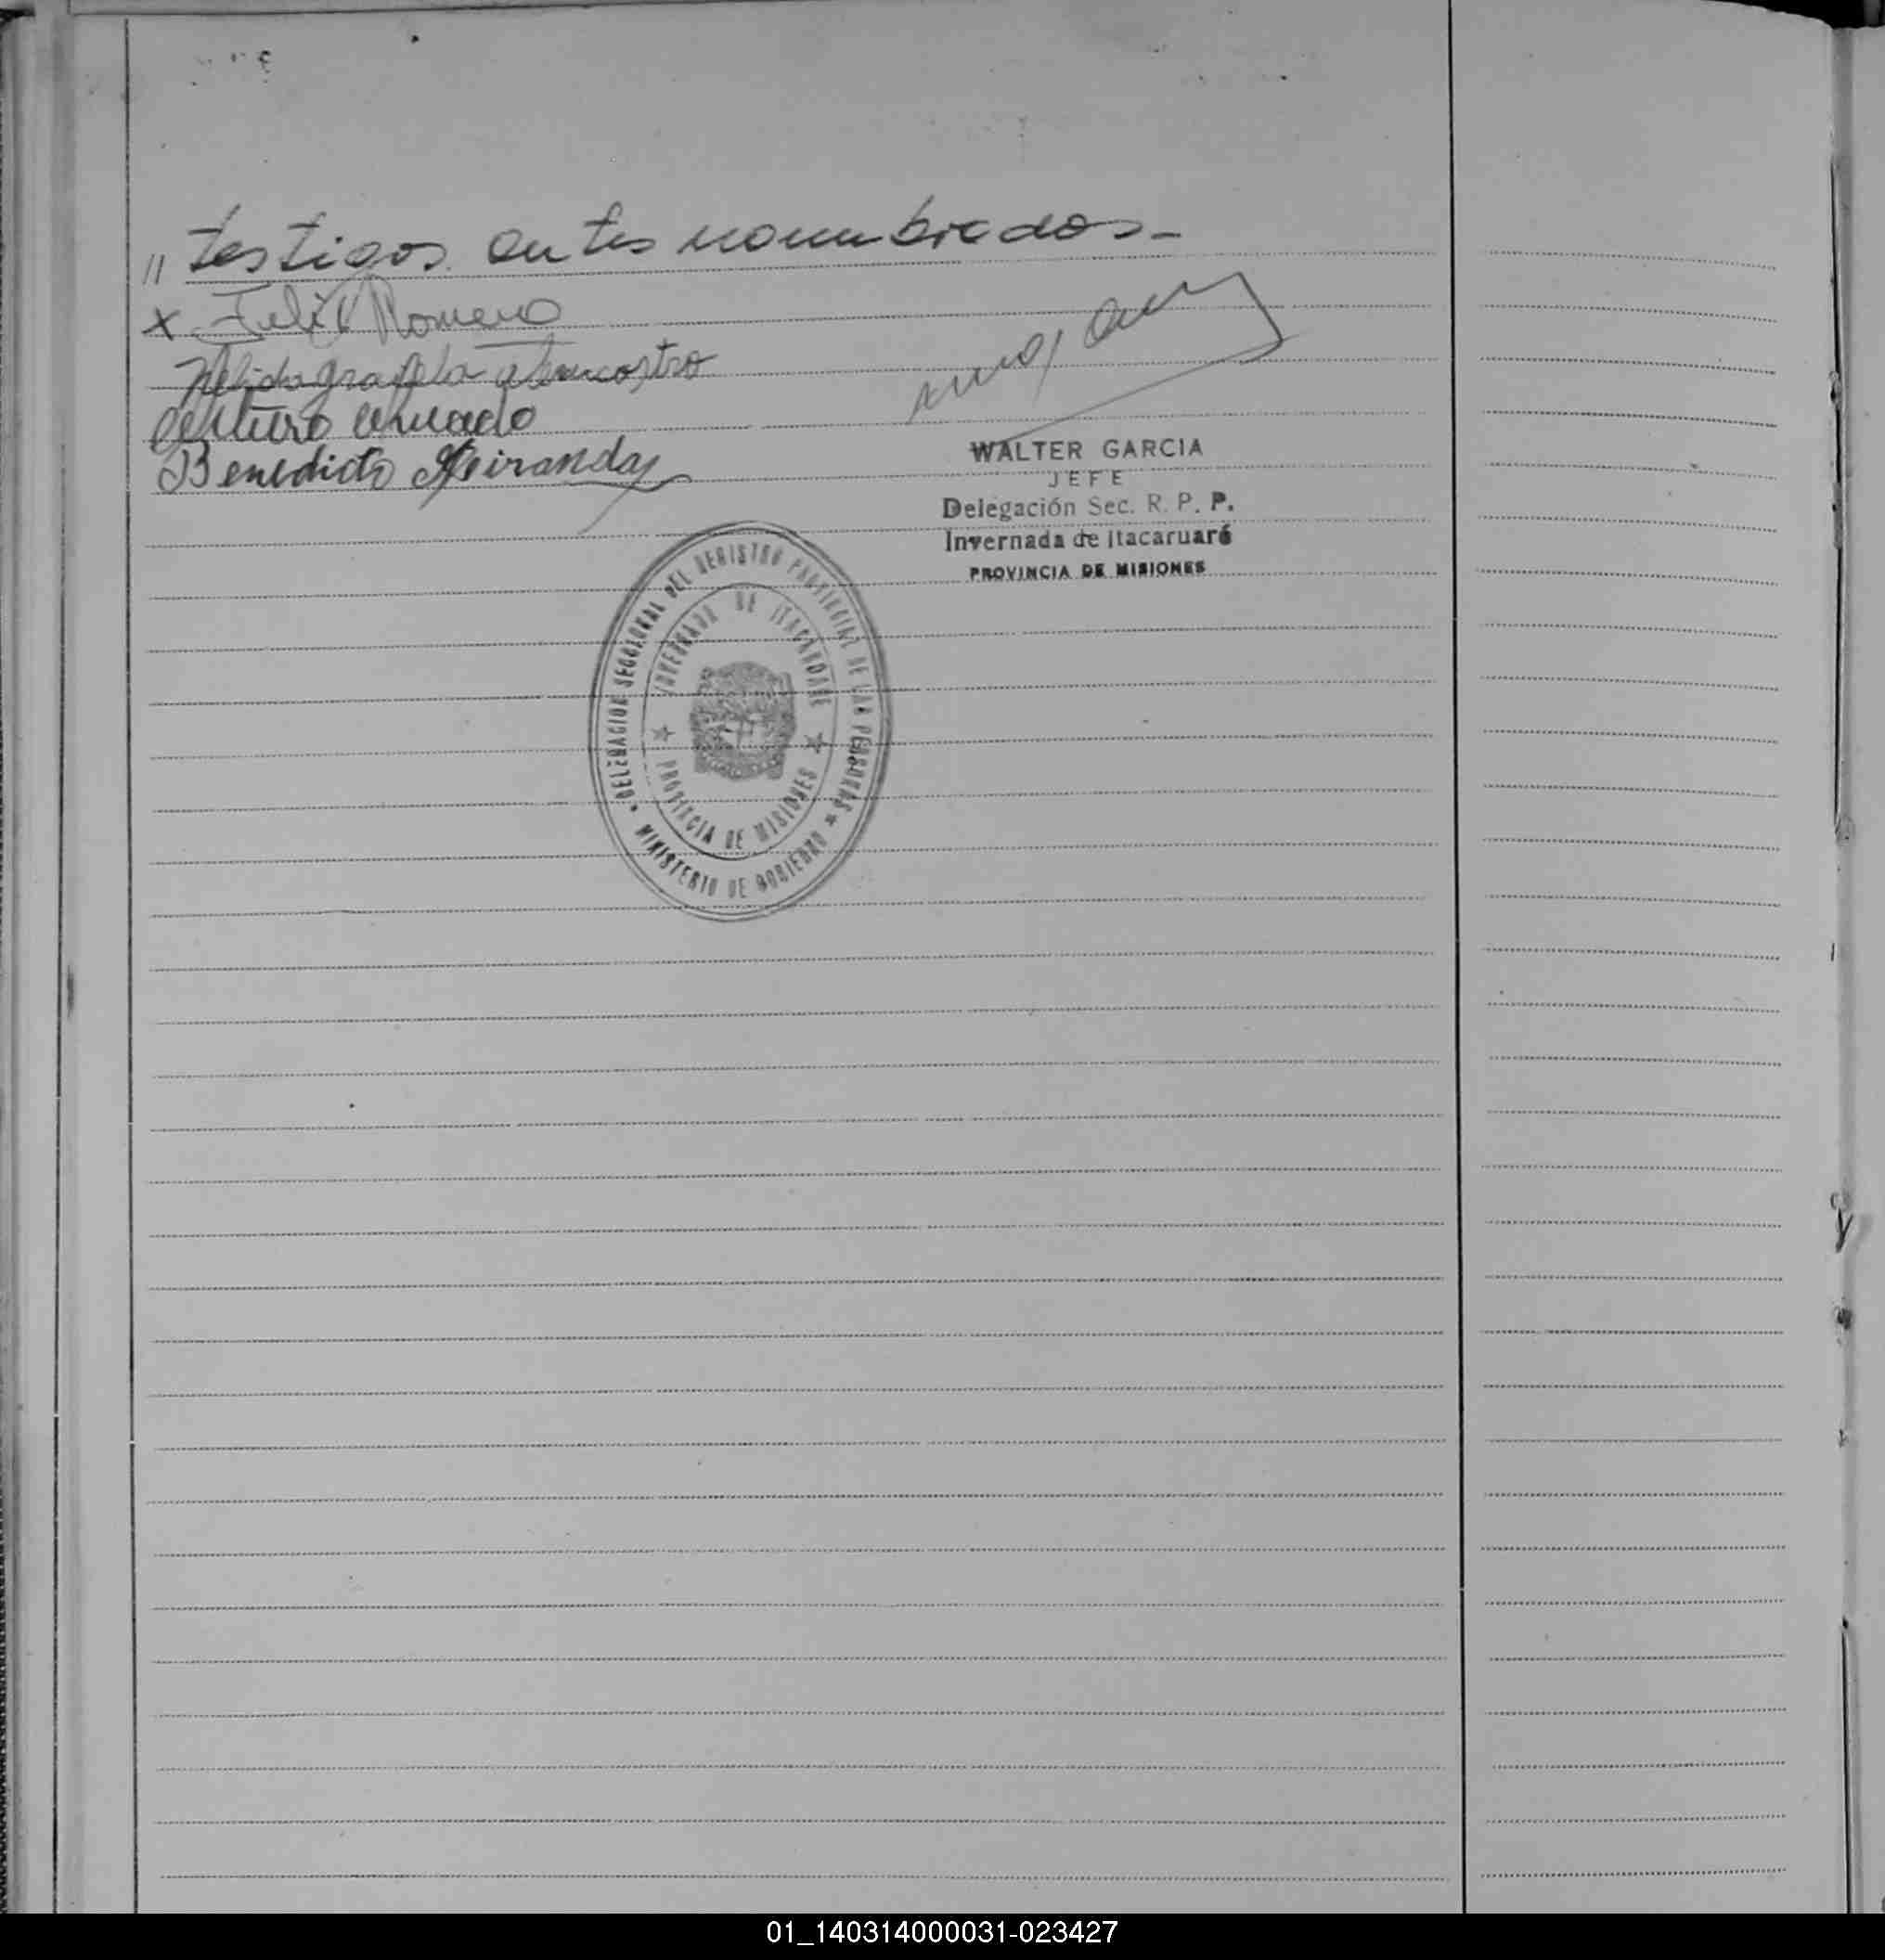 " testigos antes nombrados -
x Felix Romero
Nelida graciela
Arturo
Benedicto Miranda
WALTER GARCIA
JEFE
Delegación Sec. R. P. P.
Invernada de Itacaruaré
PROVINCIA DE MISIONES
DELEGACION SECCIONAL DEL REGISTRO PROVINCIAL DE LAS PERSONAS
INVERNADA DE ITACARUARE
PROVINCIA DE MISIONES
MINISTERIO DE GOBIERNO
01_140314000031-023427